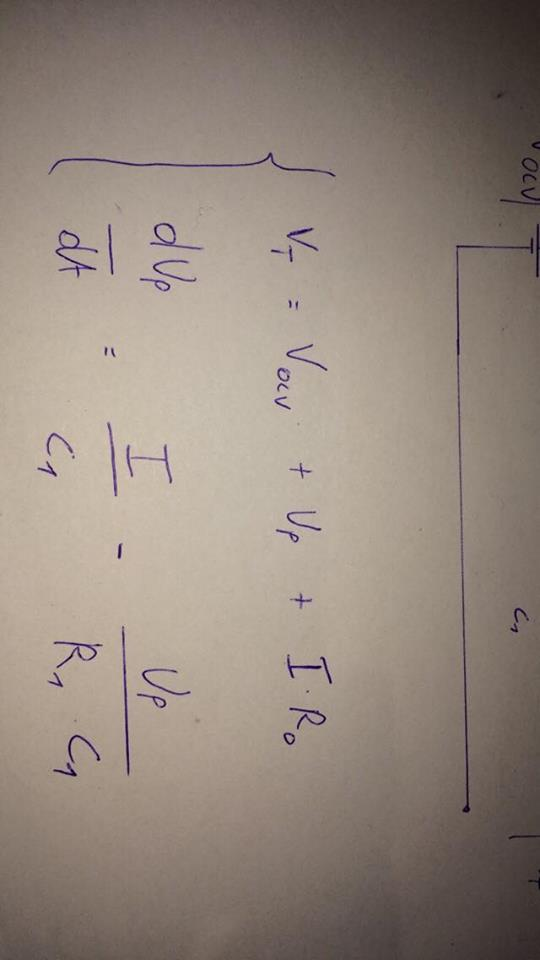 V_OCV
C_1
V_T = V_OCV + U_P + I · R_0
dU_P/dt = I/C_1 - U_P/(R_1 · C_1)